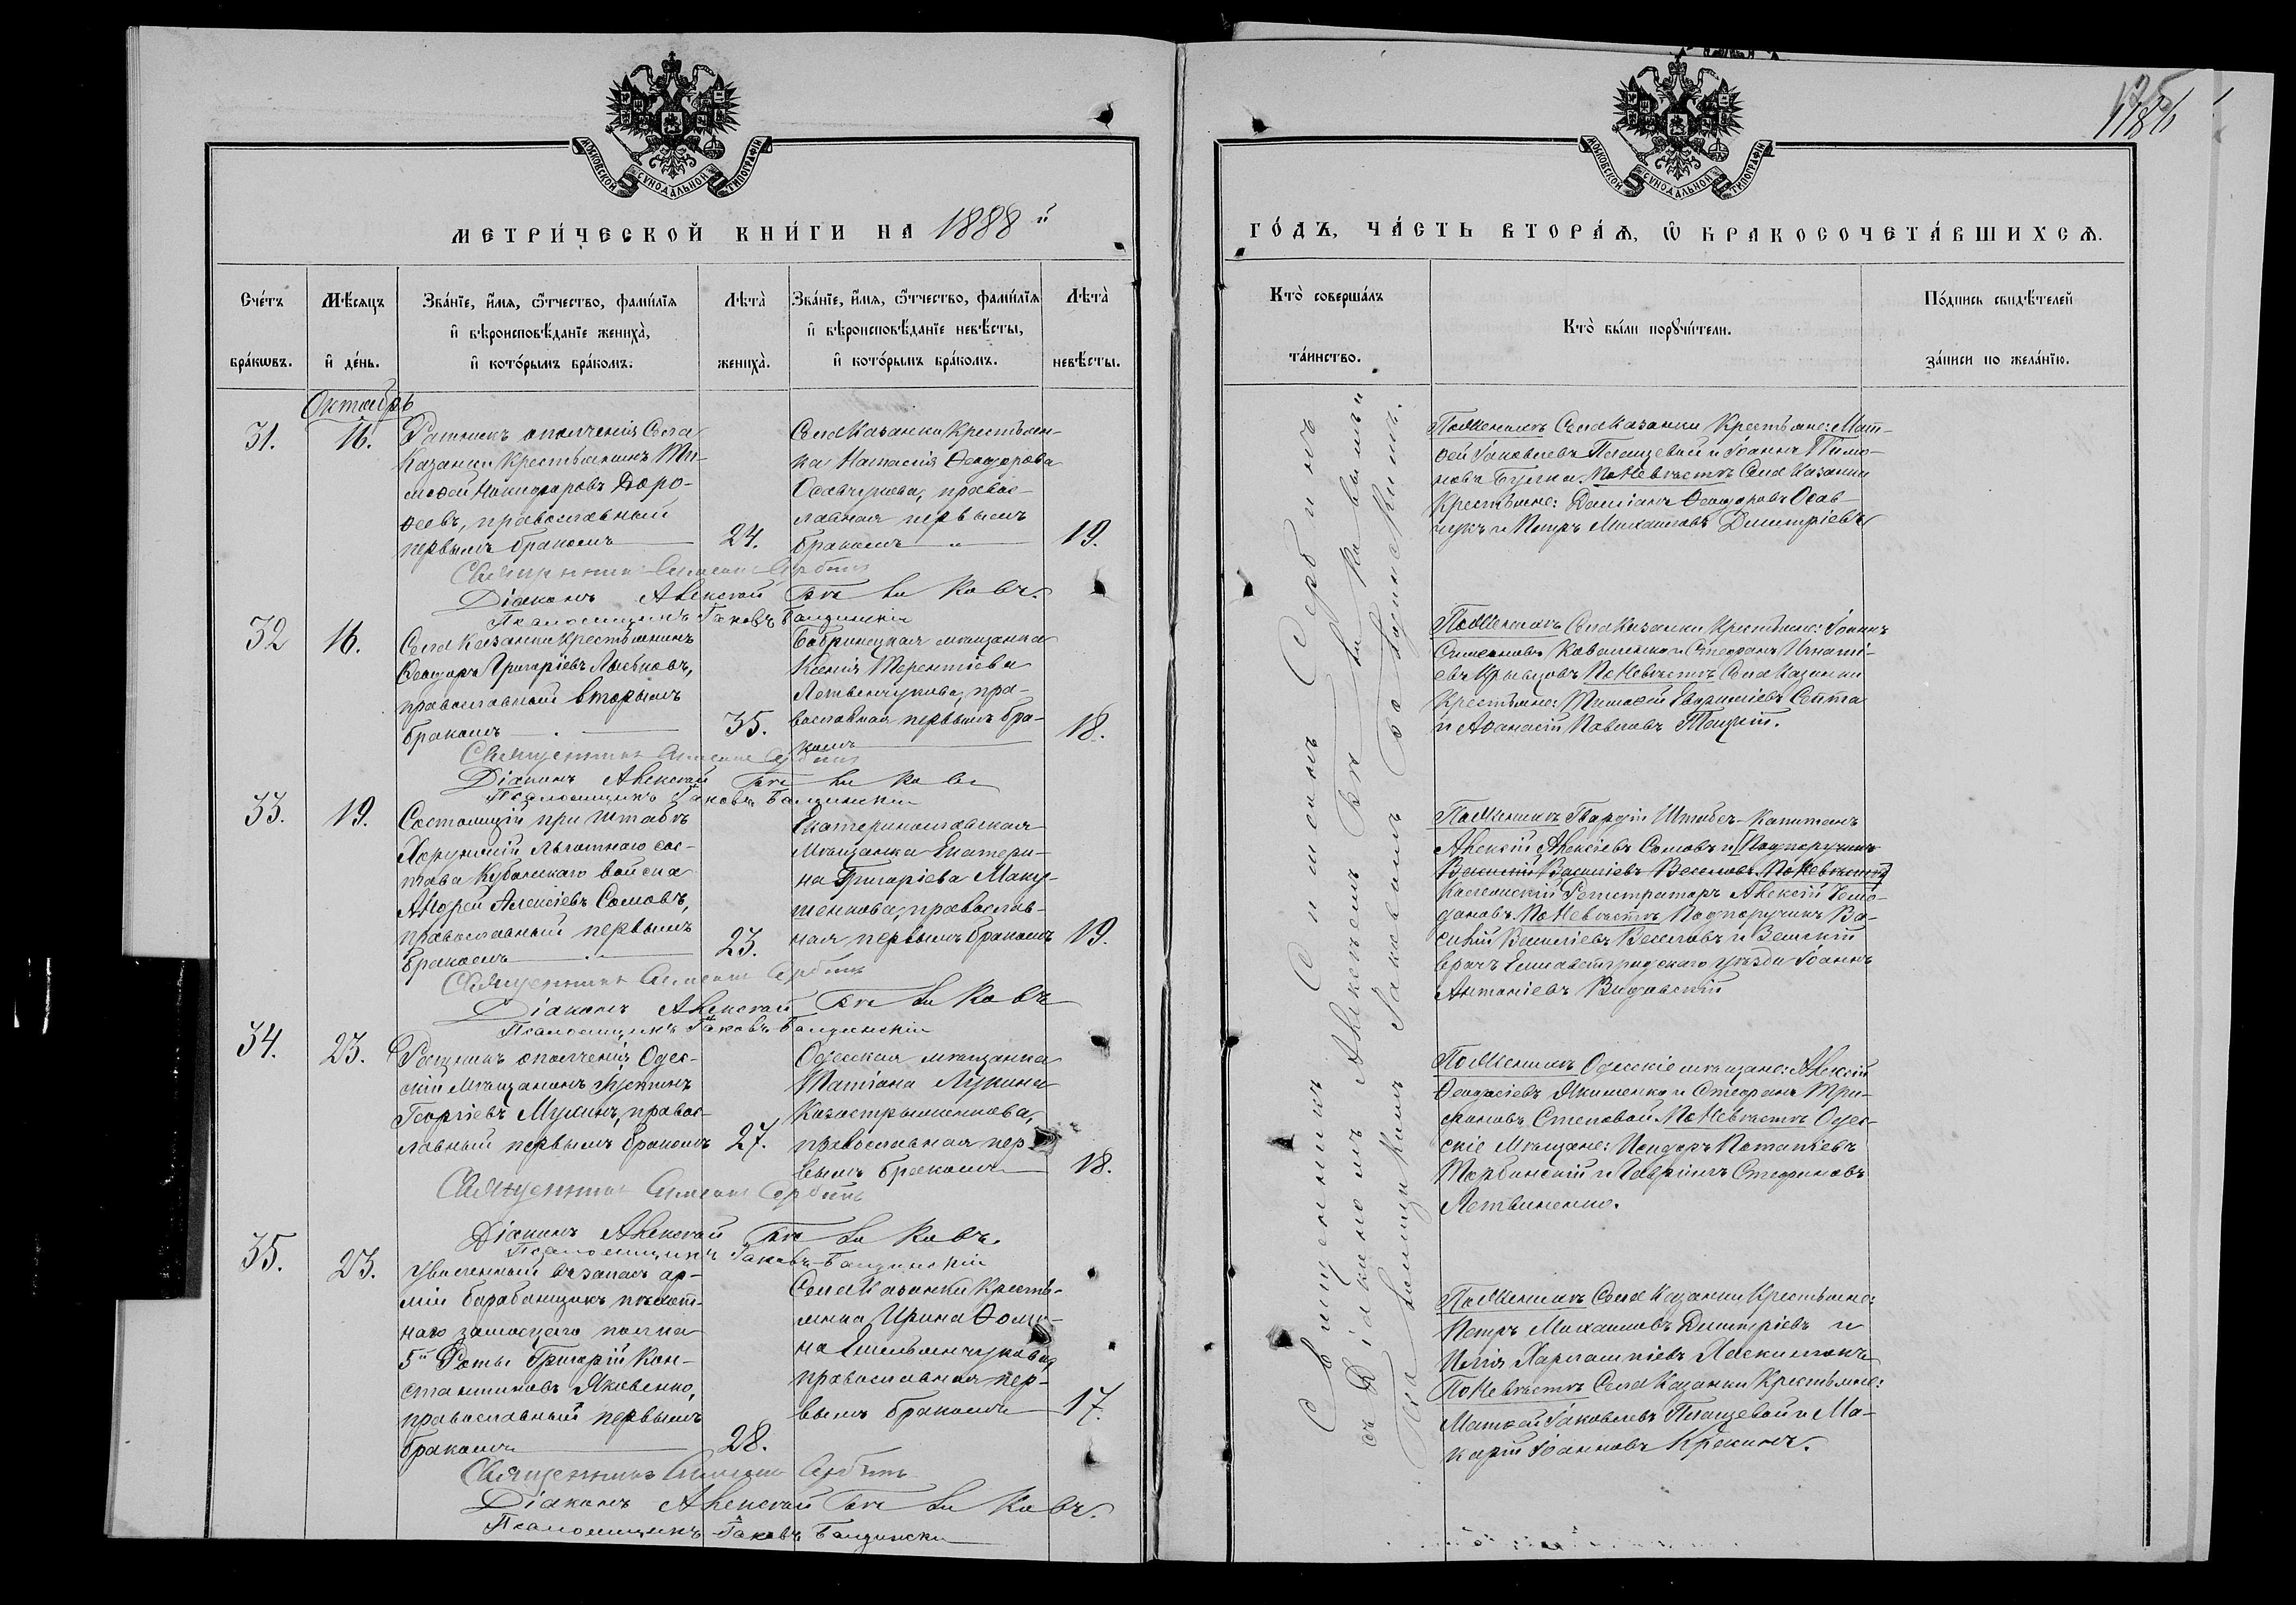 МОСКОВСКОЙ СѴНОДАЛЬНОЙ ТИПОГРАФІИ
МЕТРИ́ЧЕСКОЙ КНИ́ГИ НА 1888й
Сче́тъ бра́кѡвъ.
Мѣ́сяцъ и҆ де́нь.
Зва́нїе, и҆́мя, ѻ҆́тчество, фами́лїя
и҆ вѣроисповѣ́данїе жениха̀,
и҆ кото́рымъ бра́комъ.
Лѣта̀ жениха̀.
Зва́нїе, и҆́мя, ѻ҆́тчество, фами́лїя
и҆ вѣроисповѣ́данїе невѣ́сты,
и҆ кото́рымъ бра́комъ.
Лѣта̀ невѣ́сты.
Октябрь
31.
16.
Ратникъ ополченія Села
Казанки Крестьянинъ Ти-
моѳей Никифоровъ Доро-
ѳеевъ, православный
первымъ бракомъ
24.
Села Казанки Крестьян-
ка Наталія Ѳеодорова
Осавчукова, правос-
лавная первымъ
бракомъ
19.
Священникъ Симеонъ Сербинъ
Діаконъ Алексей
Псаломщикъ Іаковъ
32
16.
Села Казанки Крестьянинъ
Ѳеодоръ Григоріевъ
православный вторымъ
бракомъ
35.
Бобринецкая мѣщанка
Ксенія Терентіева
Летвенчукова, пра-
вославная первымъ бра-
комъ
18.
Священникъ Симеонъ Сербинъ
Діаконъ Алексей
Псаломщикъ Іаковъ
33.
19.
Состоящій при Штабѣ
Хорунжій Льготнаго сос-
тава Кубанскаго войска
Андрей Алексіевъ Сомовъ,
православный первымъ
бракомъ
23.
Екатеринославская
Мѣщанка Екатери-
на Григоріева Маку-
шенкова, православ-
ная первымъ бракомъ
19.
Священникъ Симеонъ Сербинъ
Діаконъ Алексей
Псаломщикъ Іаковъ
34.
23.
Ратникъ ополченія Одес-
скій Мѣщанинъ Іустинъ
Георгіевъ Мукинъ, правос-
лавный первымъ бракомъ
27.
Одесская мѣщанка
Татіана Лукина
православная пер-
вымъ бракомъ
18.
Священникъ Симеонъ Сербинъ
Діаконъ Алексей
Псаломщикъ Іаковъ
35.
23.
Уволенный въ запасъ ар-
міи барабанщикъ пѣхот-
наго Замосцаго полка
5й Роты Григорій Кон-
стантиновъ Яковенко,
православный первымъ
бракомъ
28.
Села Казанки Кресть-
янка Ирина Ѳоми-
на Емельянчукова
православная пер-
вымъ бракомъ
17.
Священникъ Симеонъ Сербинъ
Діаконъ Алексей
Псаломщикъ Іаковъ
МОСКОВСКОЙ СѴНОДАЛЬНОЙ ТИПОГРАФІИ
ГО́ДЪ, ЧА́СТЬ ВТОРА́Ѧ, Ѽ БРАКОСОЧЕТА́ВШИХСѦ.
Кто̀ соверша́лъ та́инство.
Кто̀ бы́ли порꙋчи́тели.
По́дпись свидѣ́телей
за́писи по жела́нїю.
Священникъ Симеонъ Сербинъ
съ Діакономъ Алексѣемъ
Псаломщикомъ Іаковомъ
По Женихѣ Села Казанки Крестьяне: Мат-
ѳей Іаковлевъ Плащевой и Іоаннъ Тимо-
новъ По Невѣстѣ Села Казанки
Крестьяне: Даміанъ Ѳеодоровъ Осав-
чукъ и Петръ Михаиловъ Димитріевъ
По Женихѣ Села Казанки Крестьяне: Іоаннъ
Симеоновъ Коваленко и Стефанъ Игнаті-
евъ Кривцовъ По Невѣстѣ Села Казанки
Крестьяне: Тимоѳей
и Аѳанасій Павловъ
По Женихѣ Гвардіи Штабсъ-Капитанъ
Алексій Алексіевъ Сомовъ и [Подпоручикъ
Василій Василіевъ Веселовъ. По Невѣстѣ]
Коллежскій Регистраторъ Алексій
По Невѣстѣ Подпоручикъ Ва-
силій Василіевъ Веселовъ и Земскій
врачъ Елисаветградскаго уѣзда Іоаннъ
Антоніевъ Видавскій
По Женихѣ Одесскіе мѣщане: Алексій
Ѳеодосіевъ Якименко и Стефанъ Три-
фоновъ Степовой. По Невѣстѣ Одес-
скіе Мѣщане: Исидоръ Потапіевъ
Торбинскій и Гавріилъ Стефановъ
Летвиненко.
По Женихѣ Села Казанки Крестьяне:
Петръ Михаиловъ Димитріевъ и
Илія Харлампіевъ
По Невѣстѣ Села Казанки Крестьяне:
Матѳей Іаковлевъ Плащевой и Ма-
карій Іоанновъ